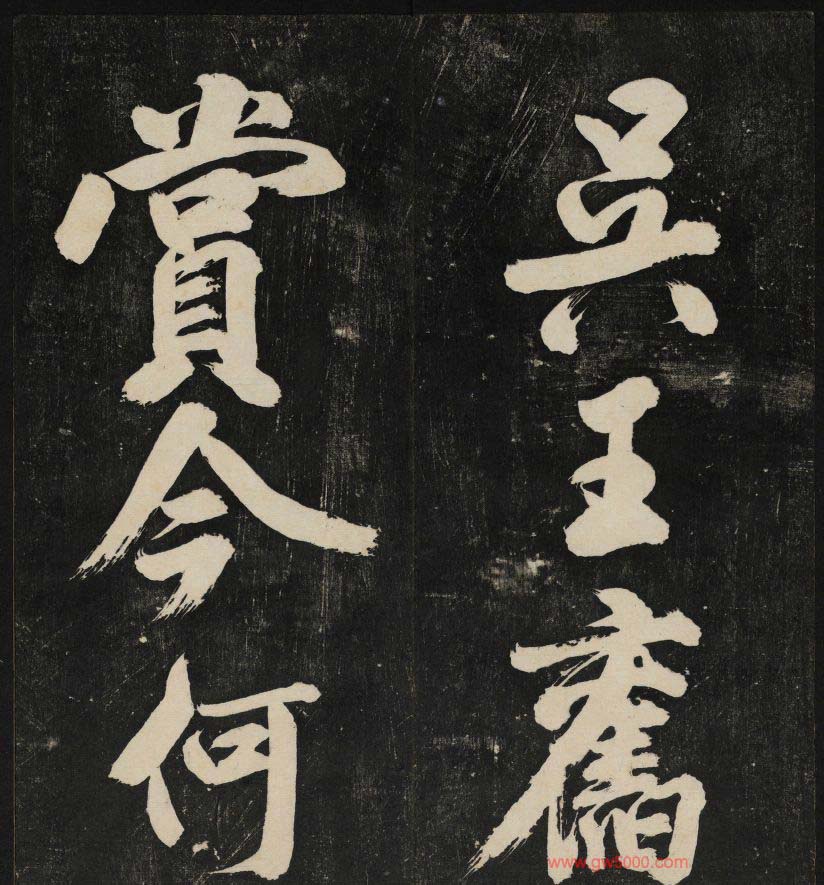 吴王舊
賞今何
www.gw5000.com